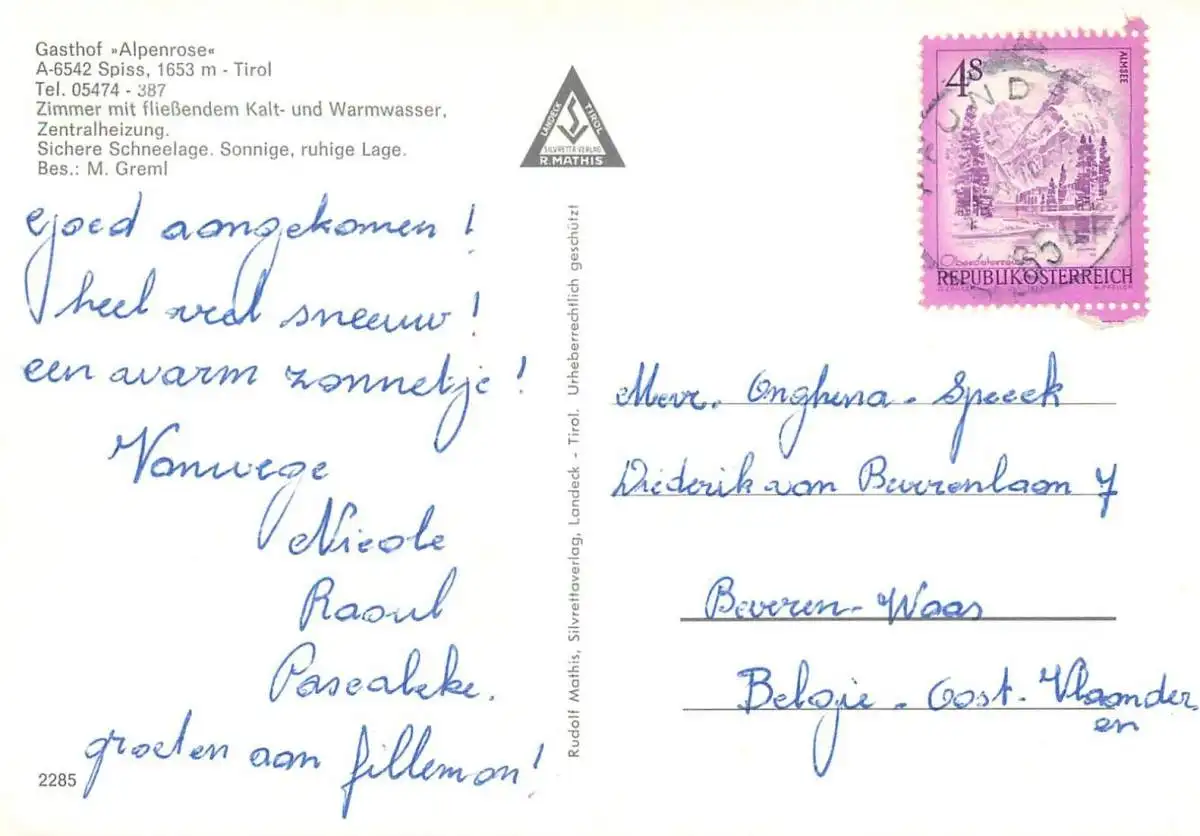 Gasthof »Alpenrose«
A-6542 Spiss, 1653 m - Tirol
Tel. 05474 - 387
Zimmer mit fließendem Kalt- und Warmwasser,
Zentralheizung.
Sichere Schneelage. Sonnige, ruhige Lage.
Bes.: M. Greml
goed aangekomen !
heel veel sneeuw !
een warm zonnetje !
Vanwege
Nicole
Raoul
Pascaleke.
groeten aan fillemon !
2285
LANDECK TIROL
SILVRETTA-VERLAG
R. MATHIS
Rudolf Mathis, Silvrettaverlag, Landeck - Tirol. Urheberrechtlich geschützt!
4S
ALMSEE
REPUBLIK ÖSTERREICH
Mevr. Onghena - Speeck
Diederik van Beverenlaan 7
Beveren-Waas
Belgie - Oost-Vlaander
en